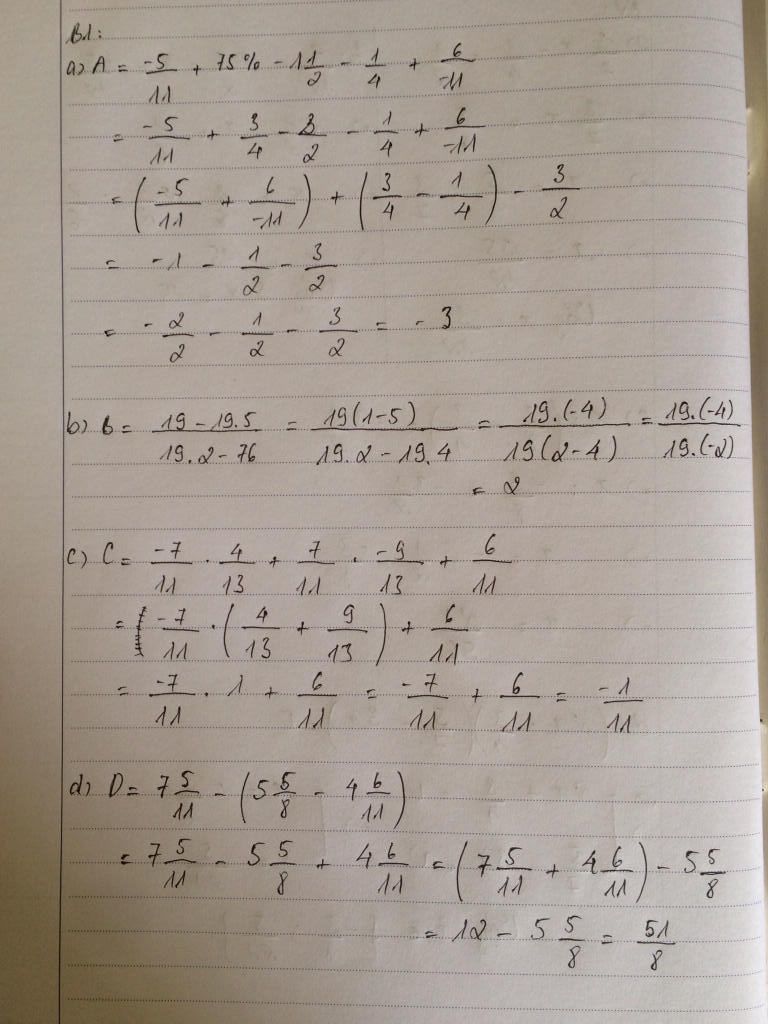 B1:
a) A = -5/11 + 75% - 1 1/2 - 1/4 + 6/-11
= -5/11 + 3/4 - 3/2 - 1/4 + 6/-11
= (-5/11 + 6/-11) + (3/4 - 1/4) - 3/2
= -1 - 1/2 - 3/2
= -2/2 - 1/2 - 3/2 = -3
b) B = 19 - 19.5/19.2 - 76 = 19(1-5)/19.2 - 19.4 = 19.(-4)/19(2-4) = 19.(-4)/19.(-2)
= 2
c) C = -7/11 . 4/13 + 7/11 . -9/13 + 6/11
= -7/11 . (4/13 + 9/13) + 6/11
= -7/11 . 1 + 6/11 = -7/11 + 6/11 = -1/11
d) D = 7 5/11 - (5 5/8 - 4 6/11)
= 7 5/11 - 5 5/8 + 4 6/11 = (7 5/11 + 4 6/11) - 5 5/8
= 12 - 5 5/8 = 51/8